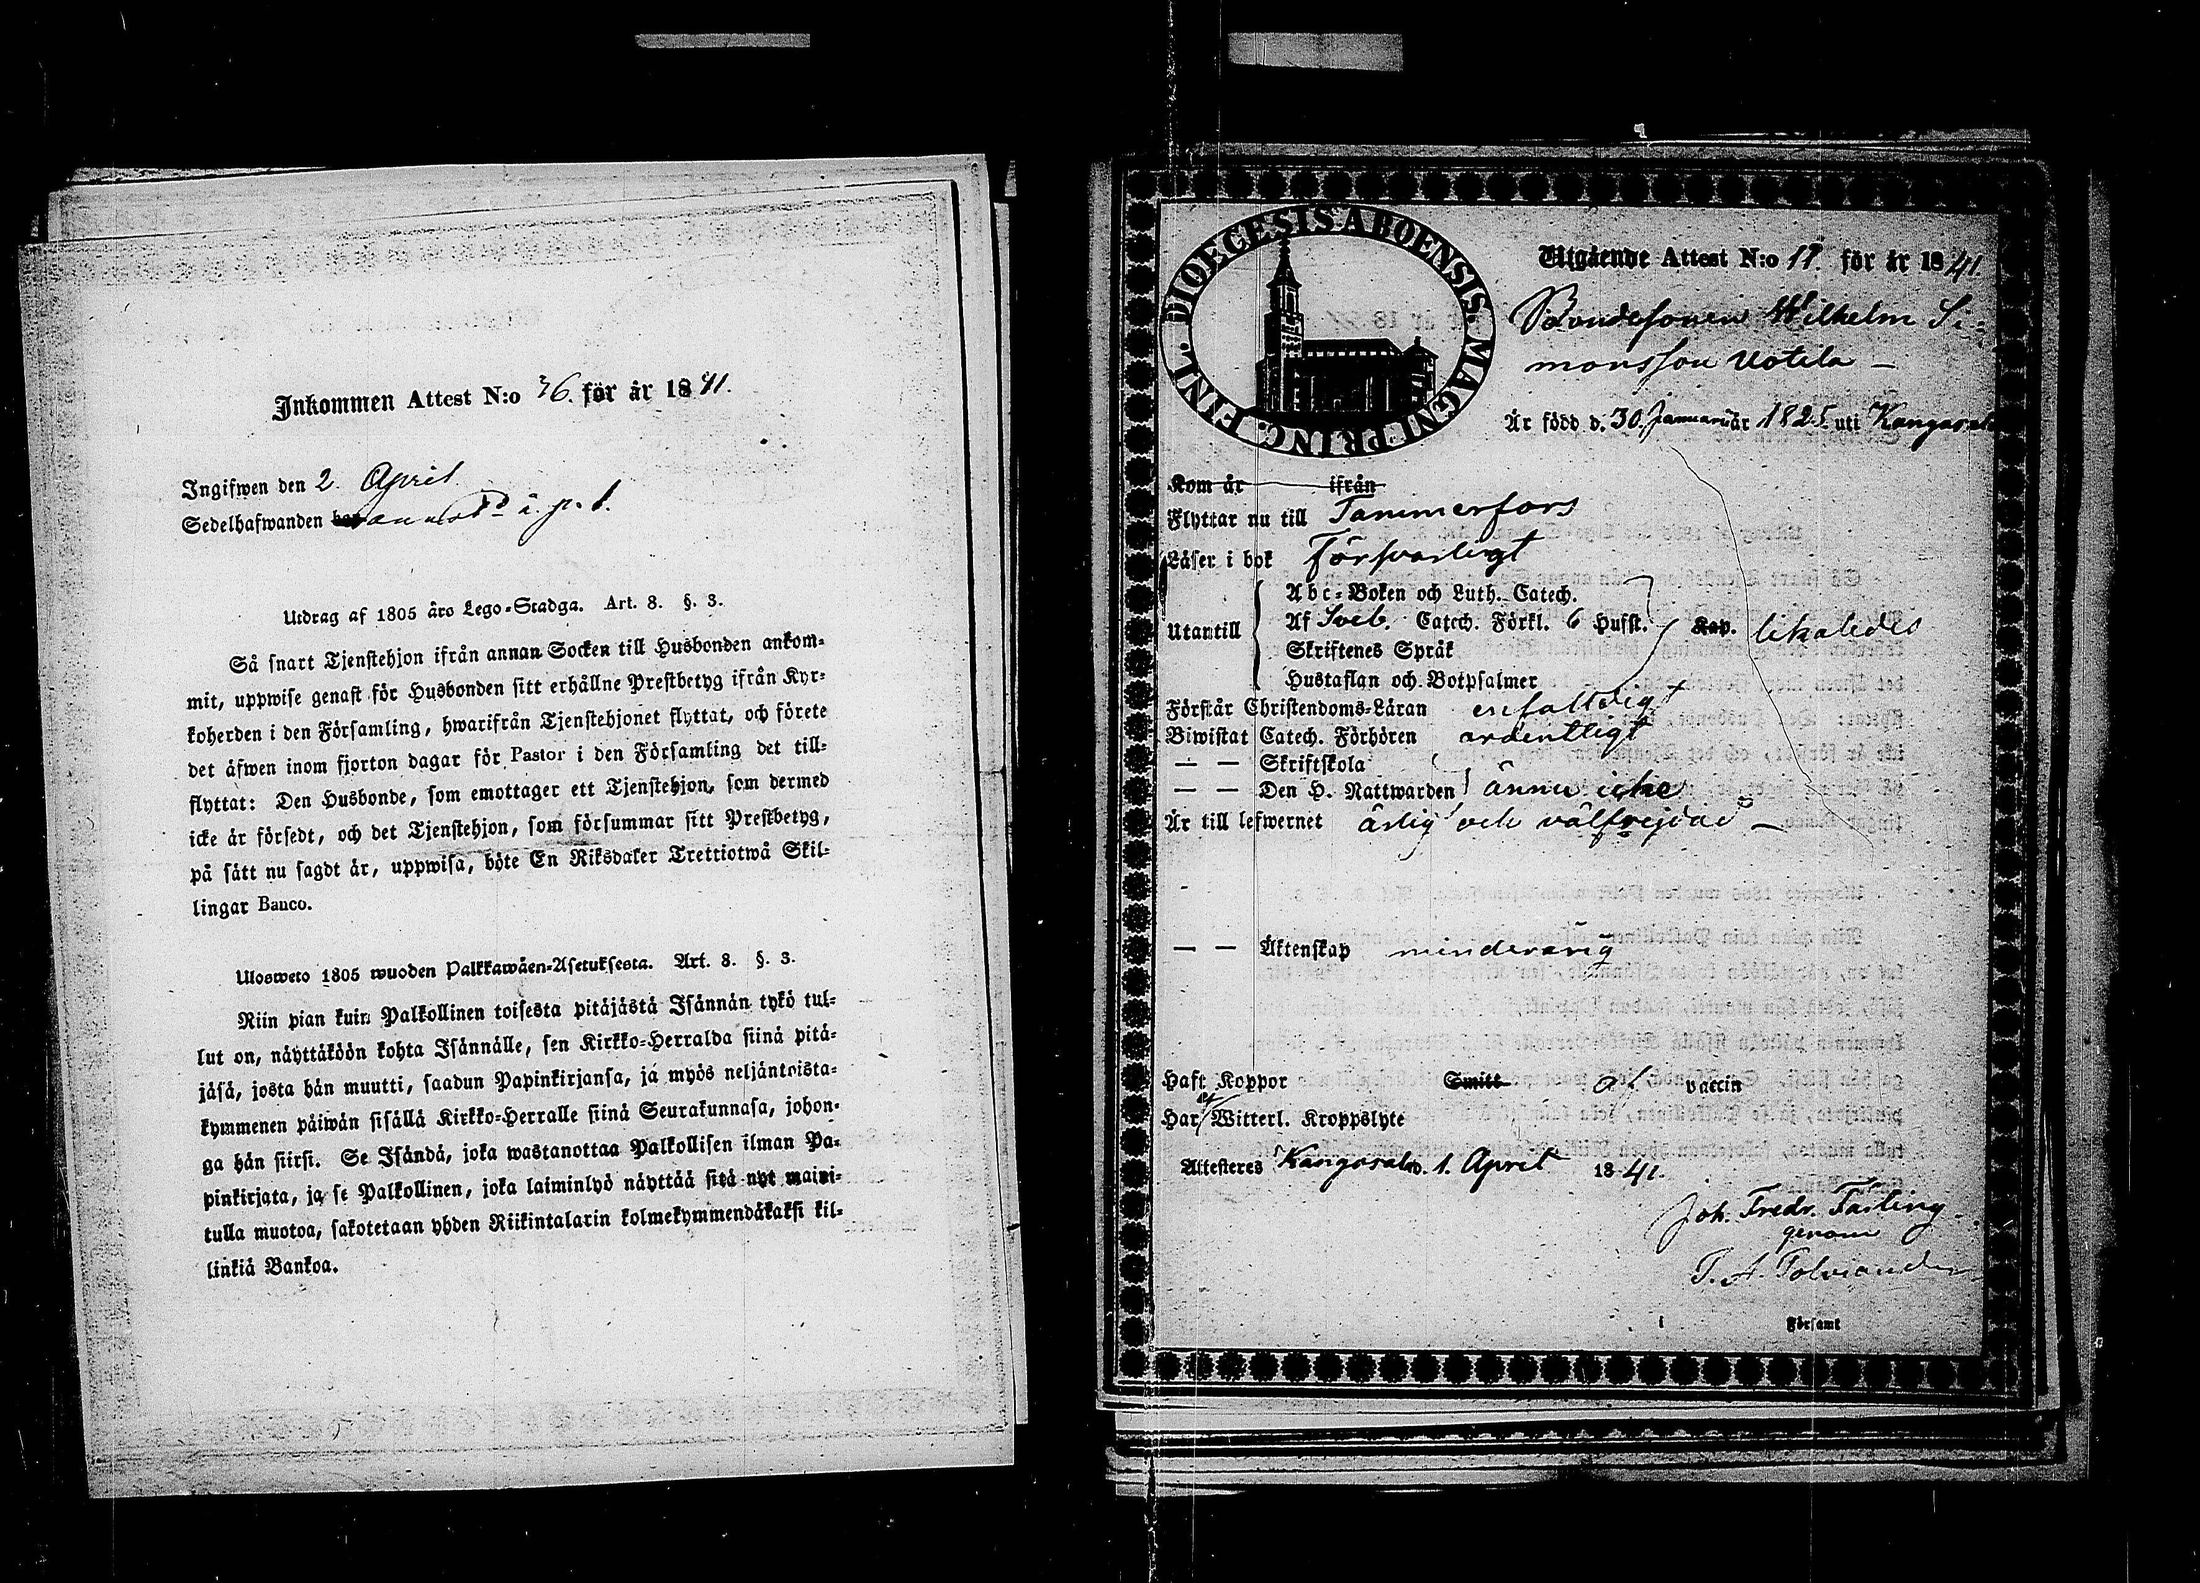 Inkommen Attest N:o 36. för år 1841.
Ingifwen den 2. April
Sedelhafwanden
Utdrag af 1805 års Lego-Stadga. Art. 8. §. 3.
Så snart Tjenstehjon ifrån annan Socken till Husbonden ankom-
mit, uppwise genast för Husbonden sitt erhållne Prestbetyg ifrån Kyr-
koherden i den Församling, hwarifrån Tjenstehjonet flyttat, och förete
det äfwen inom fjorton dagar för Pastor i den Församling det till-
flyttat: Den Husbonde, som emottager ett Tjenstehjon, som dermed
icke är försedt, och det Tjenstehjon, som försummar sitt Prestbetyg,
på sätt nu sagdt är, uppwisa, böte En Riksdaler Trettiotwå Skil-
lingar Banco.
Ulosweto 1805 wuoden Palkkawäen-Asetuksesta. Art. 8. §. 3.
Niin pian kuin Palkollinen toisesta pitäjästä Isännän tykö tul-
lut on, näyttäköön kohta Isännälle, sen Kirkko-Herralda siinä pitä-
jäsä, josta hän muutti, saadun Papinkirjansa, ja myös neljäntoista-
kymmenen päiwän sisällä Kirkko-Herralle siinä Seurakunnasa, johon-
ga hän siirsi. Se Isändä, joka wastanottaa Palkollisen ilman Pa-
pinkirjata, ja se Palkollinen, joka laiminlyö näyttää sitä nyt maini-
tulla muotoa, sakotetaan yhden Riikintalarin kolmekymmendäkaksi kil-
linkiä Bankoa.
DIOECESIS ABOENSIS. MAGNI PRINC. FINL.
Utgående Attest N:o 17. för år 1841.
Bondesonen Wilhelm Si-
monsson Uotila —
Är född d. 30. Januari år 1825 uti Kangasala
Kom år ifrån
Flyttar nu till Tammerfors
Läser i bok försvarligt
Utantill
Abc-Boken och Luth. Catech.
Af Sveb. Catech. Förkl. 6 Hufst. Kap. likaledes
Skriftenes Språk
Hustaflan och Botpsalmer
Förstår Christendoms-Läran enfaldigt
Biwistat Catech. Förhören ordentligt
— — Skriftskola
— — Den H. Nattwarden ännu icke
Är till lefwernet ärlig och välfrejdad —
— — Äktenskap minderårig
Haft Koppor Smitt af vaccin
Har ej Witterl. Kroppslyte
Attesteres Kangasala d. 1. April 1841.
Joh. Fredr. Färling
genom
T. A. Polviander
i Församl